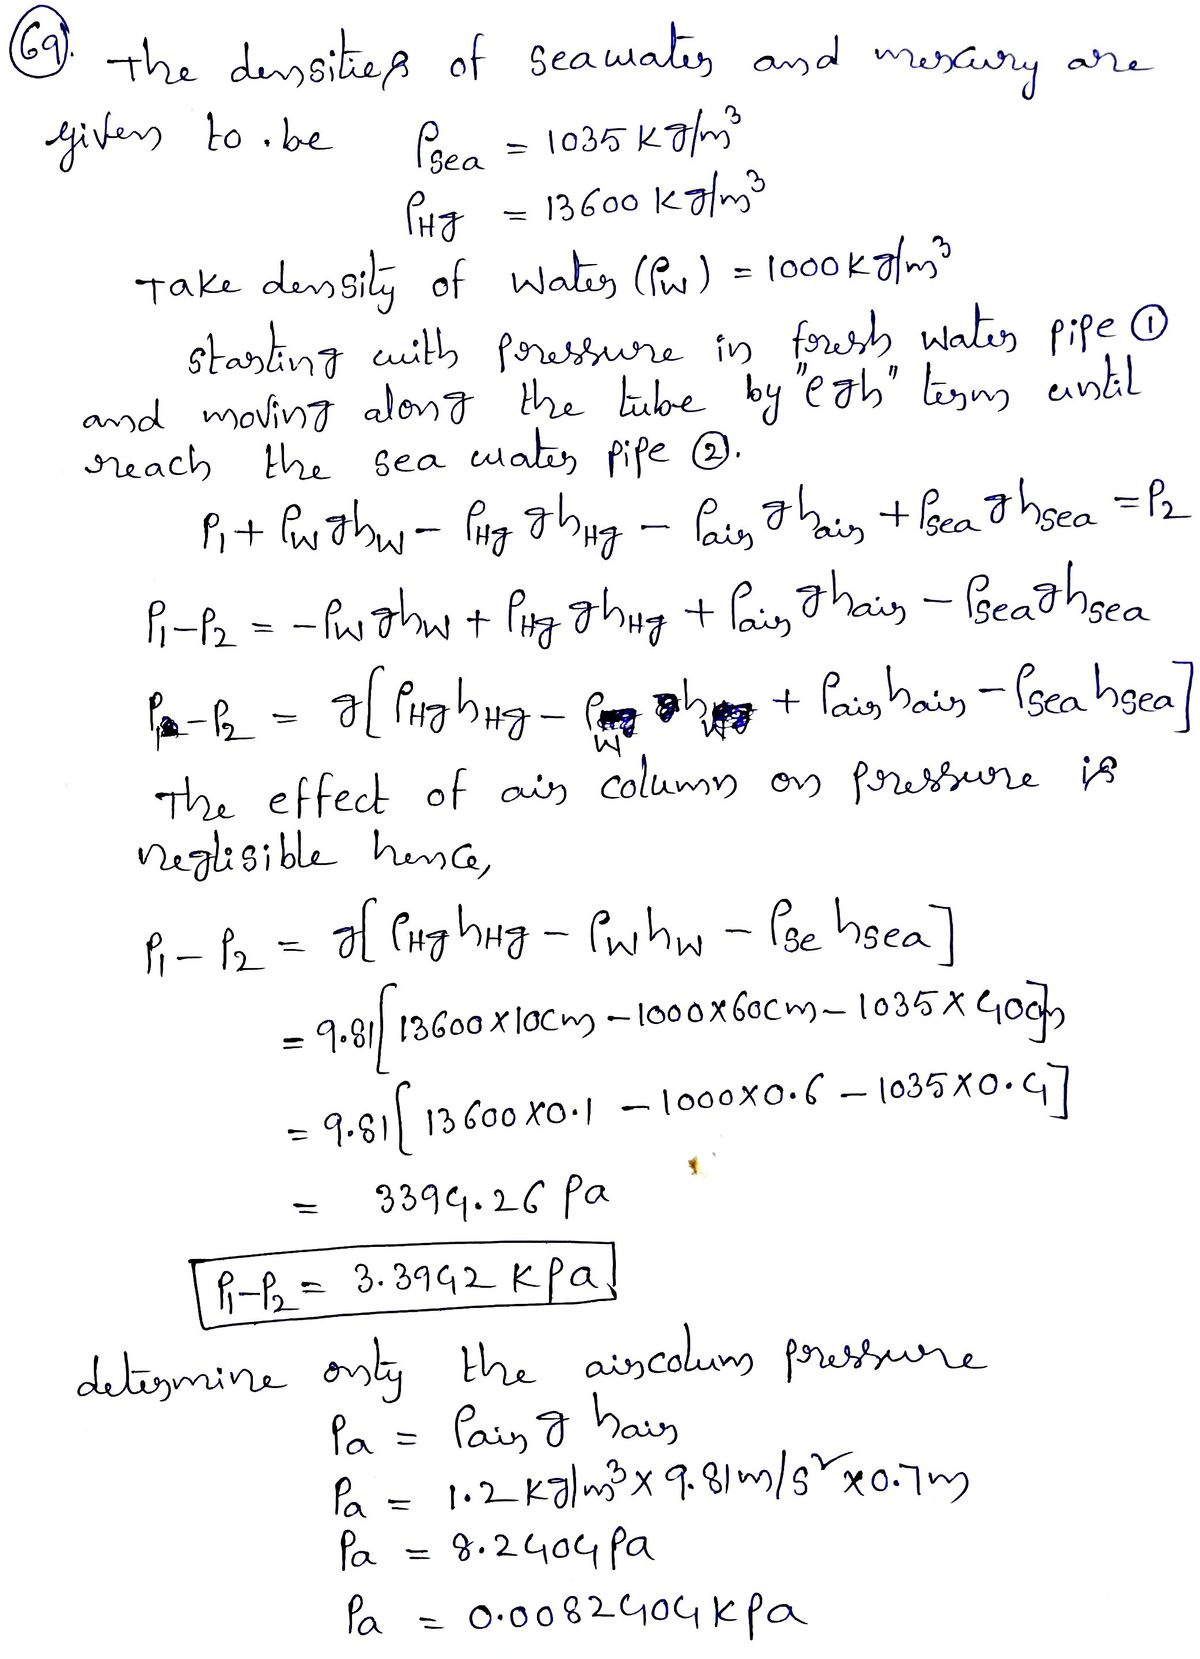 69. The densities of seawater and mercury are
given to be ρsea = 1035 kg/m³
ρHg = 13600 kg/m³
Take density of water (ρw) = 1000 kg/m³
starting with pressure in fresh water pipe ①
and moving along the tube by "ρgh" term until
reach the sea water pipe ②.
P₁ + ρw ghw - ρHg ghHg - ρair ghair + ρsea ghsea = P₂
P₁-P₂ = -ρw ghw + ρHg ghHg + ρair ghair - ρsea ghsea
P₁-P₂ = g[ρHg hHg - ρw hw + ρair hair - ρsea hsea]
The effect of air column on pressure is
neglisible hence,
P₁ - P₂ = g[ρHg hHg - ρw hw - ρse hsea]
= 9.81[13600×10cm - 1000×60cm - 1035×40cm]
= 9.81[13600×0.1 - 1000×0.6 - 1035×0.4]
= 3394.26 Pa
P₁-P₂ = 3.3942 kPa
determine only the aircolum pressure
Pa = ρair g hair
Pa = 1.2 kg/m³ × 9.81 m/s² × 0.7m
Pa = 8.2404 Pa
Pa = 0.0082404 kPa